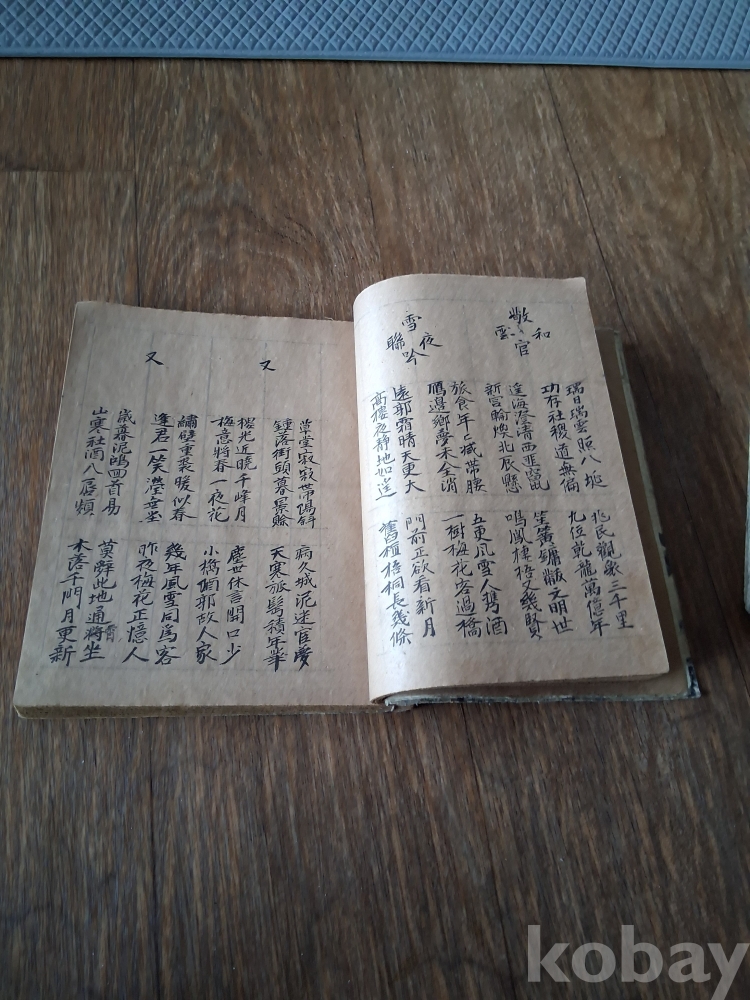 敬和
官
瑞日瑞雲照八埏 兆民觀象三千里
功存社稷道無偏 九位乾龍萬億年
海澄清西 笙簧鏞黻文明世
新宮輪煥北辰懸 鳴鳳棲梧又幾賢
雪夜
聯吟
旅食年〻减帶腰 五更風雪人携酒
鴈邊鄉夢未全消 一樹梅花客過橋
遠郊霜晴天更大 門前正欲看新月
高樓夜靜地如遙 舊植梧桐長幾條
又
草堂寂寂帶陽斜 病久城泥迷官夢
鍾落街頭暮景賒 天寒旅髩積年華
樓光近曉千峰月 塵世休言開口少
梅意將春一夜花 小橋偏郭故人家
又
繡壁重裘暖似春 幾年風雪同爲客
逢君一笑滢虛堂 昨夜梅花正憶人
歲暮泥鴻回首易 莫辭此地通宵坐
山寒社酒八唇頻 木落千門月更新
kobay